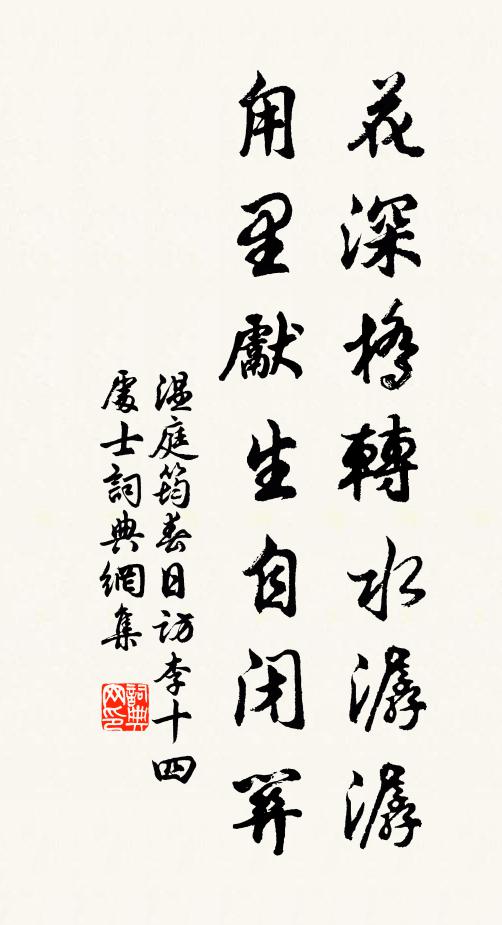 花深橋轉水潺潺
甪里獻生自閉關
温庭筠春日訪李十四
處士詞典網集
詞典
网印